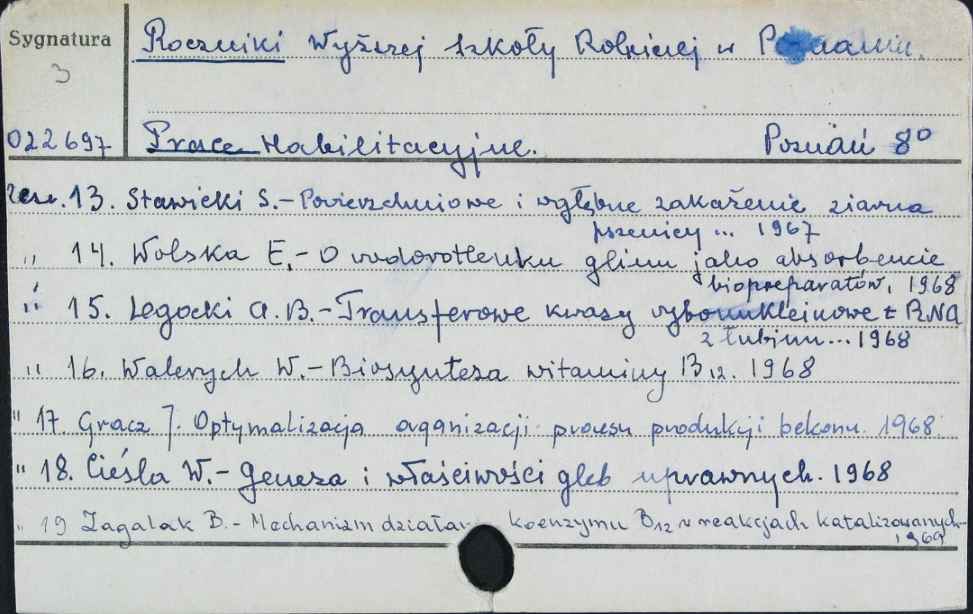 Sygnatura
3
Roczniki Wyższej Szkoły Rolniczej w Poznaniu.
022697 Prace Habilitacyjne. Poznań 8°
zesz. 13. Stawicki S.- Powierzchniowe i wgłębne zakażenie ziarna
pszenicy ... 1967
" 14. Wolska E.- O wodorotlenku glinu jako absorbencie
biopreparatów, 1968
" 15. Legocki A. B.- Transferowe kwasy rybonukleinowe t RNA
z łubinu... 1968
" 16. Walerych W.- Biosynteza witaminy B12. 1968
" 17. Gracz J. Optymalizacja organizacji procesu produkcji bekonu. 1968.
" 18. Cieśla W.- Geneza i właściwości gleb uprawnych. 1968
" 19 Zagalak B.- Mechanizm działan koenzymu B12 w reakcjach katalizowanych-
1969